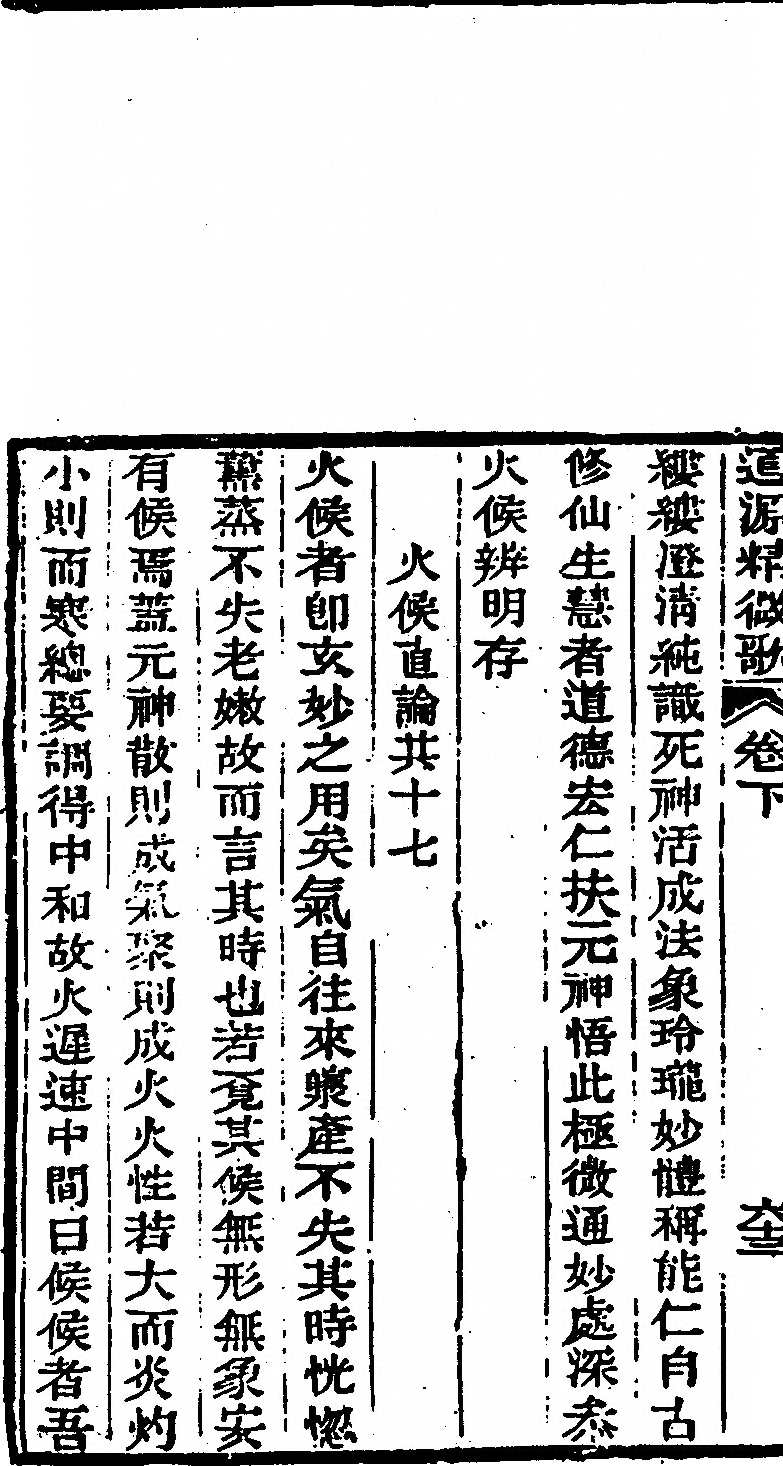 道源精微歌 卷下 六十三
縷縷澄清純識死神活成法象玲瓏妙體稱能仁自古
修仙生慧者道德宏仁扶元神悟此極微通妙處深叅
火候辨明存
火候直論共十七
火候者卽玄妙之用矣氣自往來藥產不失其時恍惚
薰蒸不失老嫰故而言其時也若覔其候無形無象安
有候焉蓋元神散則成氣聚則成火火性若大而炎灼
小則而寒總要調得中和故火遲速中間曰候候者吾